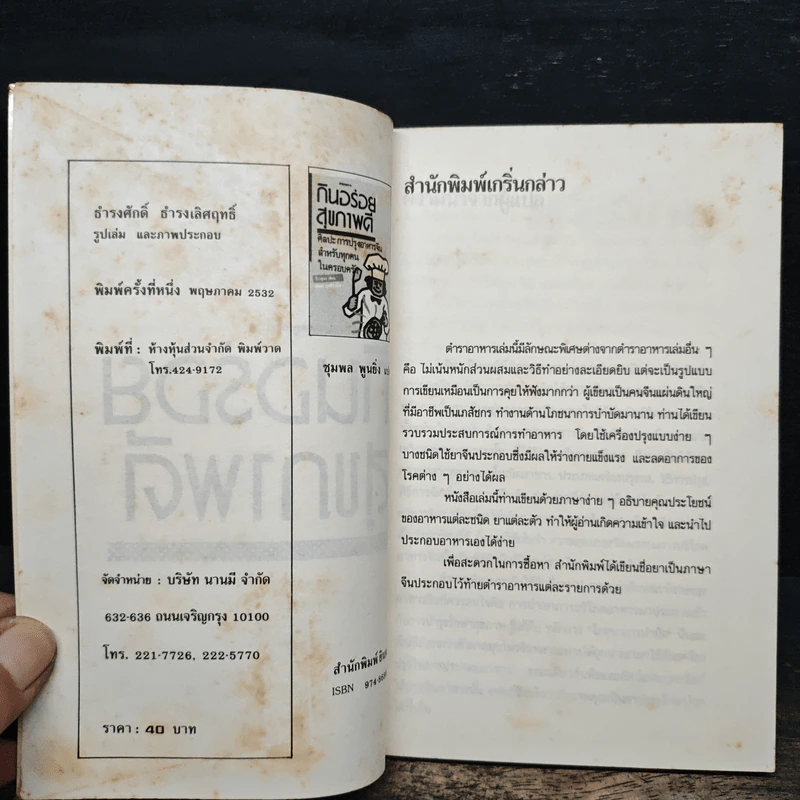 ธำรงศักดิ์ ธำรงเลิศฤทธิ์
รูปเล่ม และภาพประกอบ
พิมพ์ครั้งที่หนึ่ง พฤษภาคม 2532
พิมพ์ที่ : ห้างหุ้นส่วนจำกัด พิมพ์วาด
โทร.424-9172
จัดจำหน่าย : บริษัท นานมี จำกัด
632-636 ถนนเจริญกรุง 10100
โทร. 221-7726, 222-5770
ราคา : 40 บาท
กินอร่อย
สุขภาพดี
ศิลปะการปรุงอาหารจีน
สำหรับทุกคน
ในครอบครัว
ชุมพล พูนยิ่ง
สำนักพิมพ์
ISBN 974-88
สำนักพิมพ์เกริ่นกล่าว
ตำราอาหารเล่มนี้มีลักษณะพิเศษต่างจากตำราอาหารเล่มอื่น ๆ
คือ ไม่เน้นหนักส่วนผสมและวิธีทำอย่างละเอียดยิบ แต่จะเป็นรูปแบบ
การเขียนเหมือนเป็นการคุยให้ฟังมากกว่า ผู้เขียนเป็นคนจีนแผ่นดินใหญ่
ที่มีอาชีพเป็นเภสัชกร ทำงานด้านโภชนาการบำบัดมานาน ท่านได้เขียน
รวบรวมประสบการณ์การทำอาหาร โดยใช้เครื่องปรุงแบบง่าย ๆ
บางชนิดใช้ยาจีนประกอบซึ่งมีผลให้ร่างกายแข็งแรง และลดอาการของ
โรคต่าง ๆ อย่างได้ผล
หนังสือเล่มนี้ท่านเขียนด้วยภาษาง่าย ๆ อธิบายคุณประโยชน์
ของอาหารแต่ละชนิด ยาแต่ละตัว ทำให้ผู้อ่านเกิดความเข้าใจ และนำไป
ประกอบอาหารเองได้ง่าย
เพื่อสะดวกในการซื้อหา สำนักพิมพ์ได้เขียนชื่อยาเป็นภาษา
จีนประกอบไว้ท้ายตำราอาหารแต่ละรายการด้วย